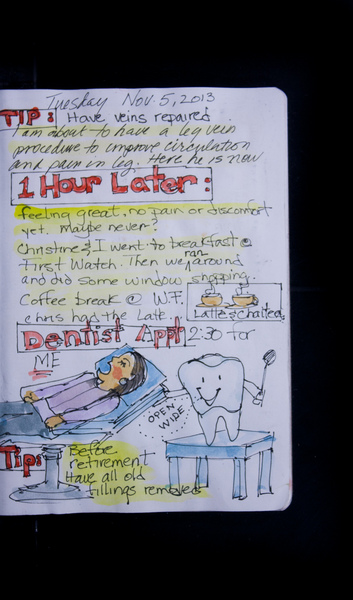 Tuesday Nov. 5, 2013
TIP: Have veins repaired
I am about to have a leg vein
procedure to improve circulation
and pain in leg. Here he is now
1 Hour Later:
feeling great, no pain or discomfort
yet. maybe never?
Christine & I went to breakfast @
First Watch. Then we ran around
and did some window shopping.
Coffee break @ W.F.
chris had the Latte.
Latte & Chaitea
Dentist Appt 2:30 for
ME
OPEN
WIDE
Tip: Before
retirement
Have all old
fillings removed